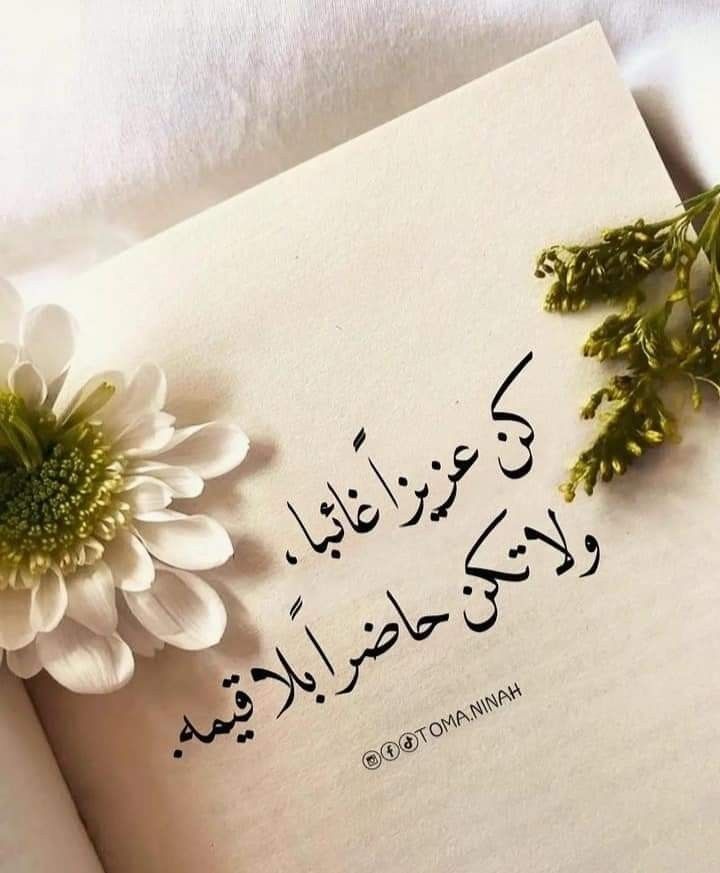 كن عزيزاً غائبا،
ولا تكن حاضراً بلا قيمه.
TOMA.NINAH